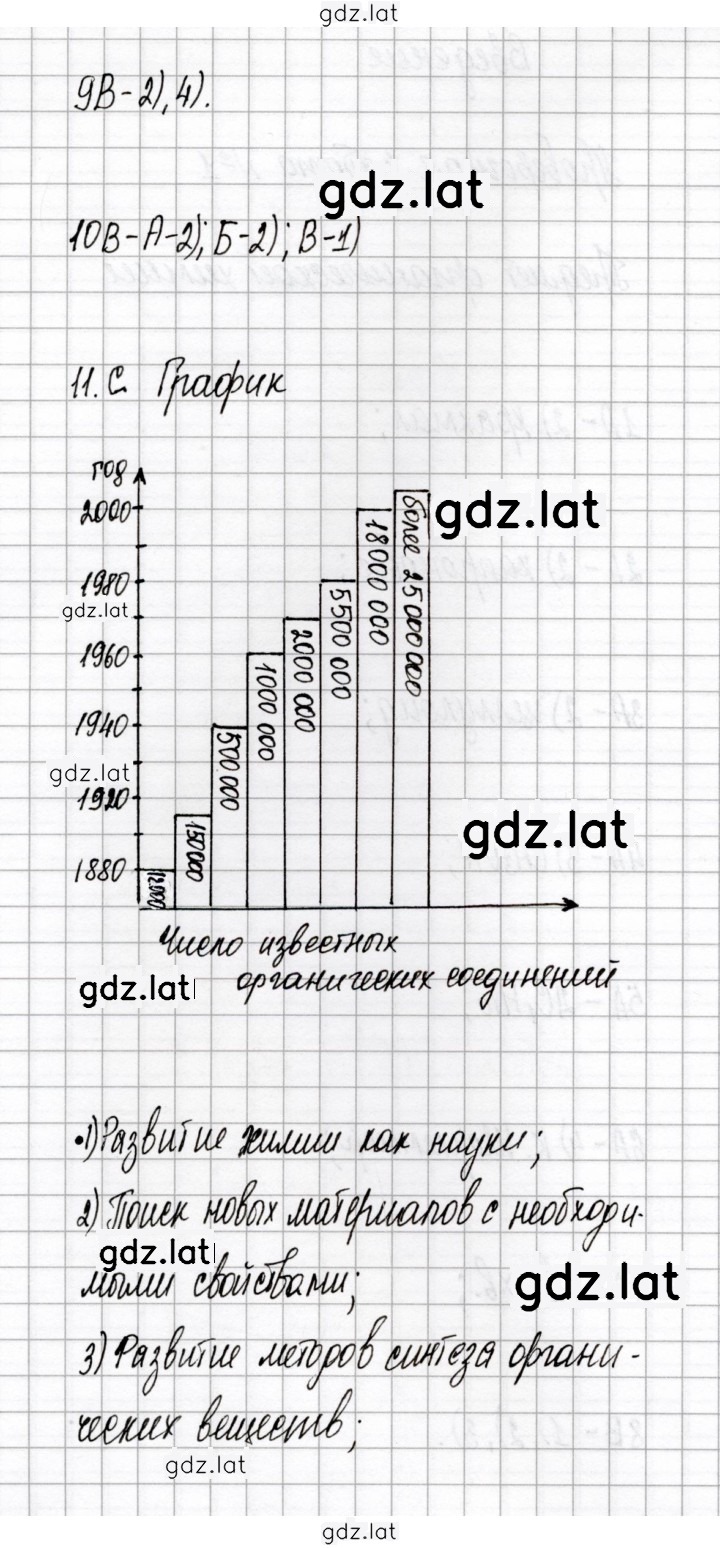 gdz.lat
9В-2),4).
gdz.lat
10В-А-2); Б-2); В-1)
11. С График
год
2000
gdz.lat
1980
gdz.lat
1960
1940
gdz.lat
1920
gdz.lat
1880
12000
150000
500.000
1000 000
2000 000
5500 000
18 000 000
более 25 000 000
Число известных
органических соединений
gdz.lat
•1) Развитие химии как науки;
2) Поиск новых материалов с необходи-
gdz.lat
мыми свойствами;
gdz.lat
3) Развитие методов синтеза органи-
ческих веществ;
gdz.lat
gdz.lat